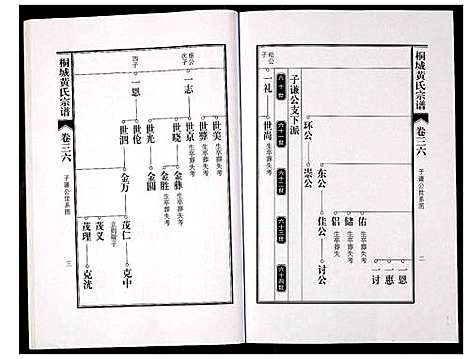 桐城黄氏宗谱
卷三六
子谦公世系图
二
子谦公支下派
六十世
六十一世
六十二世
六十三世
六十四世
环公
崇公
东公
佳公
侣
生卒葬失
储
生卒葬失考
佑
生卒葬失考
讨公
一讨
一惠
一恩
松公子
一礼
世尚
生卒葬失考
一志
世美
生卒葬失考
世彝
生卒葬失考
世京
生卒葬失考
世晓
金彝
生卒葬失考
金胜
生卒葬失考
四子
一恩
世光
金圆
世伦
世泗
金万
茂仁
克中
茂义
茂理
克洸
桐城黄氏宗谱
卷三六
子谦公世系图
三